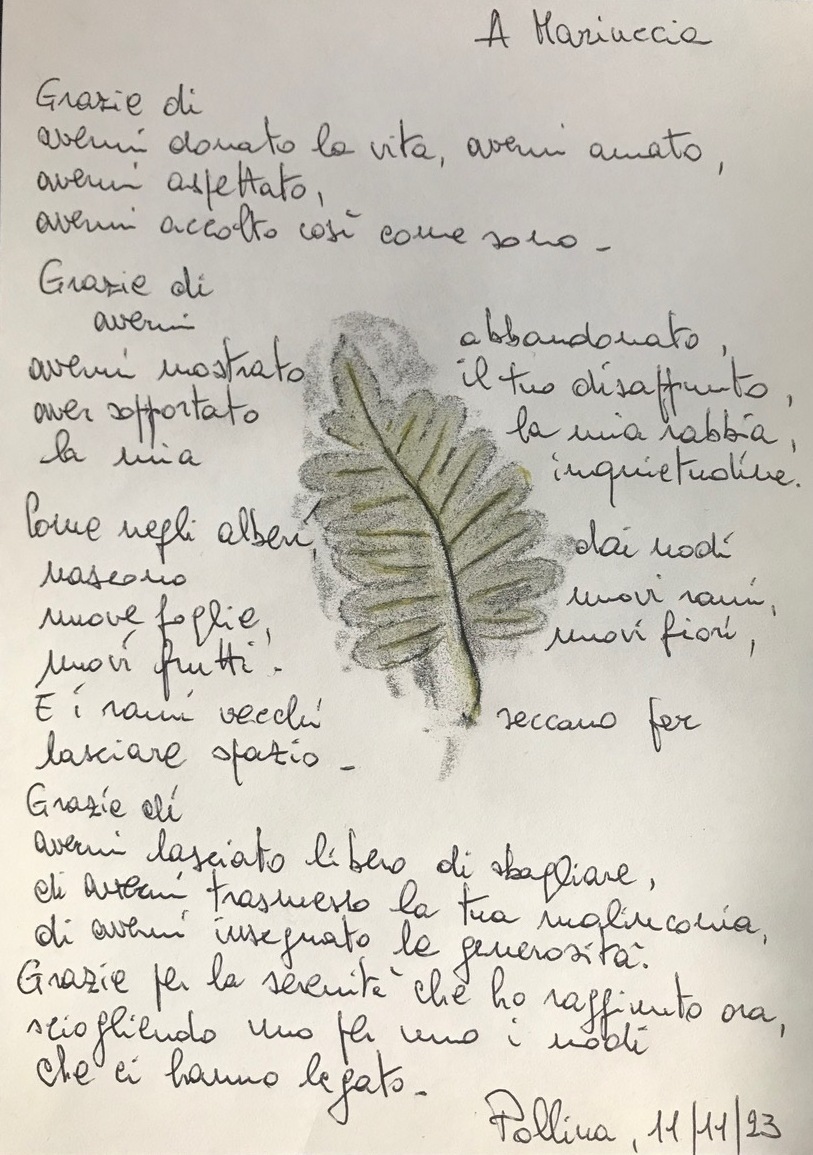 A Mariuccia
Grazie di
avermi donato la vita, avermi amato,
avermi aspettato,
avermi accolto così come sono -
Grazie di
avermi abbandonato,
avermi mostrato il tuo disappunto,
aver sopportato la mia rabbia,
la mia inquietudine.
Come negli alberi, dai nodi
nascono nuovi rami,
nuove foglie, nuovi fiori,
nuovi frutti -
E i rami vecchi seccano per
lasciare spazio -
Grazie di
avermi lasciato libero di sbagliare,
di avermi trasmesso la tua malinconia,
di avermi insegnato la generosità.
Grazie per la serenità che ho raggiunto ora,
sciogliendo uno per uno i nodi
che ci hanno legato -
Pollina, 11/11/23